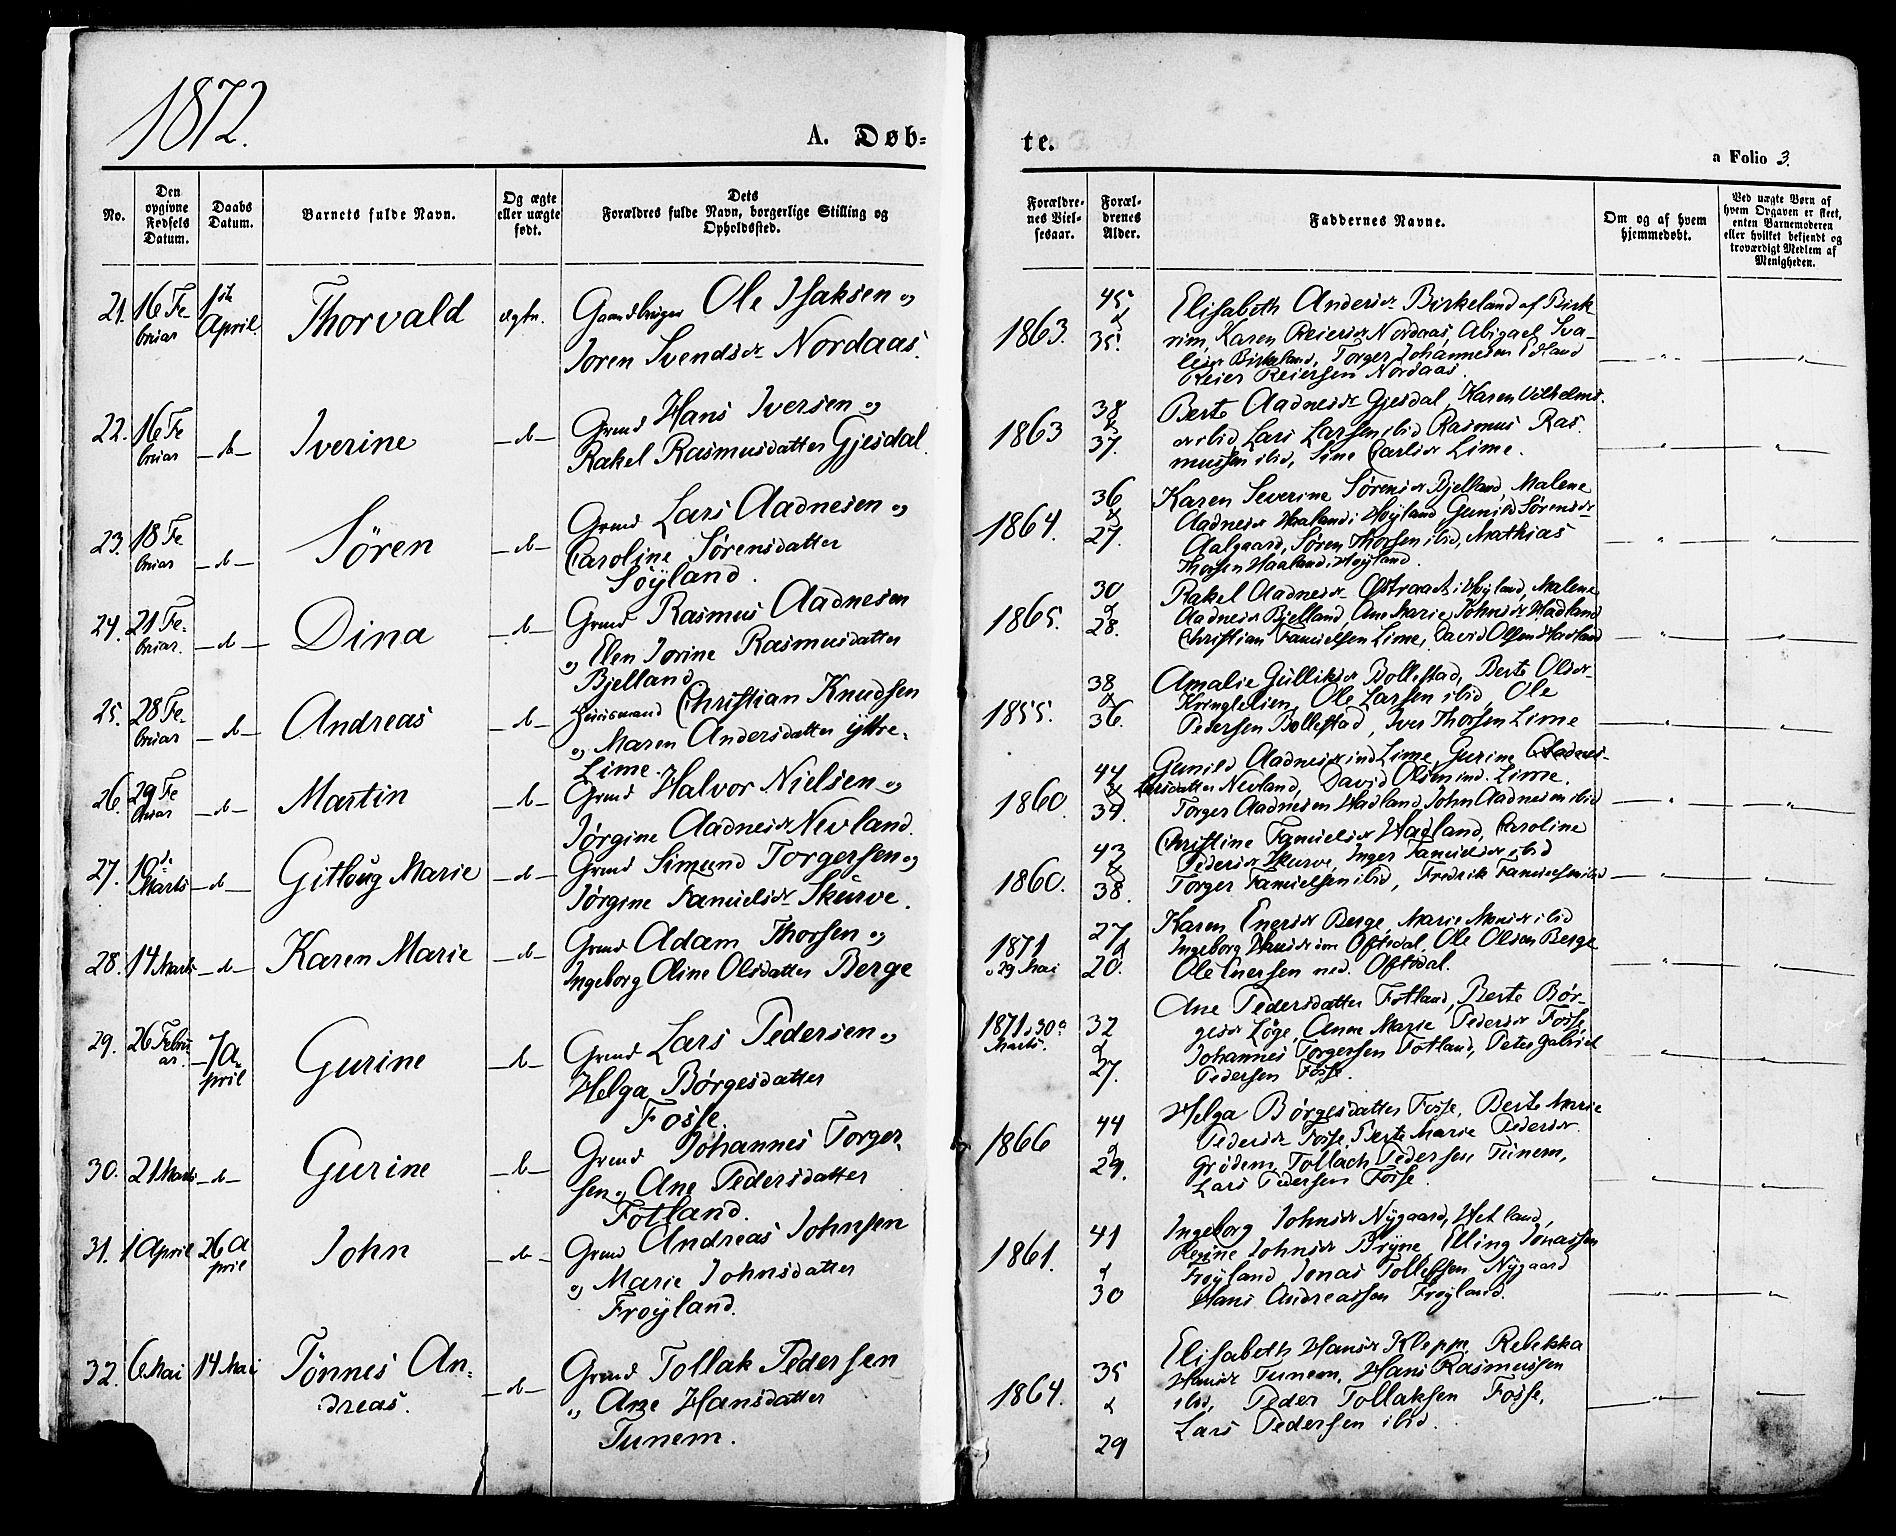 1872.
A. Døb=
te.
a Folio 3.
No.
Den opgivne Fødsels Datum.
Daabs Datum.
Barnets fulde Navn.
Og ægte eller uægte født.
Dets Forældres fulde Navn, borgerlige Stilling og Opholdssted.
Forældrenes Vielsesaar.
Forældrenes Alder.
Faddernes Navne.
Om og af hvem hjemmedøbt.
Ved uægte Børn af hvem Opgaven er skeet, enten Barnemoderen eller hvilket bekjendt og troværdigt Medlem af Menigheden.
21. 16 Februar 1ste April Thorvald ægte. Gaardbruger Ole Isaksen og
Joren Svendsdr Nordaas.
1863. 45 & 35.
Elisabeth Andersdr Birkeland af Birk-
rim, Karen Reiersdr Nordaas, Abigael Sva-
lesdr Birkeland, Torger Johannesen Edland
Reier Reiersen Nordaas.
22. 16 Februar -d- Iverine -d- Grmd Hans Iversen og
Rakel Rasmusdatter Gjesdal.
1863 38 & 37.
Berte Aadnesdr Gjesdal, Karen Vilhelms-
dr ibid, Lars Larsen ibid Rasmus Ras-
mussen ibid, Sine Carlsdr Lime.
23. 18 Februar -d- Sören -d- Grmd Lars Aadnesen og
Caroline Sørensdatter
Söyland.
1864. 36 & 27.
Karen Severine Sørensdr Bjelland, Malene
Aadnesdr Haaland i Høyland Gunild Sørensdr
Aalgaard, Søren Thorsen ibid, Mathias
Thorsen Haaland i Høyland.
24. 21 Februar. -d- Dina -d- Grmd Rasmus Aadnesen
og Elen Jorine Rasmusdatter
Bjelland
1865. 30 & 28.
Rakel Aadnesdr Østraadt i Høyland, Malene
Aadnesdr Bjelland, Ane Marie Johnsdr Hadland
Christian Samuelsen Lime, David Olsen Hadland
25. 28 Februar -d- Andreas -d- Huusmand Christian Knudsen
og Maren Andersdatter yttre-
Lime.
1855. 38 & 36.
Amalie Gulliksdr Bollestad, Berte Olsdr
Kringlelien, Ole Larsen ibid, Ole
Pedersen Bollestad, Iver Thorsen Lime
26. 29 Februar -d- Martin -d- Grmd Halvor Nielsen og
Jørgine Aadnesdr Nevland.
1860. 44 & 34.
Gunild Aadnesdr ind. Lime, Gurine Aadnes-
Larsdatter Nevland, David Olsen ind. Lime.
Torger Aadnesen Hadland, John Aadnesen ibid
27. 10de Marts -d- Gitloug Marie -d- Grmd Simund Torgersen og
Jørgine Samuelsdr Skurve.
1860. 43 & 38.
Christine Samuelsdr Hadland, Caroline
Pedersdr Skurve, Inger Samuelsdr ibid
Torger Samuelsen ibid, Fredrik Samuelsen ibid
28. 14 Marts -d- Karen Marie -d- Grmd Adam Thorsen og
Ingeborg Oline Olsdatter Berge
1871 29 Mai 27 & 20.
Karen Enersdr Berge, Marie Monsdr ibid
Ingeborg Oftedal, Ole Olsen Berge
Ole Enersen ned. Oftedal.
29. 26 Februar. 7 April Gurine -d- Grmd Lars Pedersen og
Helga Børgesdatter
Fosse.
1871 d 30te Marts. 32 & 27.
Ane Pedersdatter Fotland, Berte Bør-
gesdr Løge, Anne Marie Pedersdr Fosse,
Johannes Torgersen Fotland, Peter Gabriel
Pedersen Fosse.
30. 21 Marts -d- Gurine -d- Grmd Johannes Torger-
sen og Ane Pedersdatter
Fotland.
1866 44 & 29.
Helga Børgesdatter Fosse, Berte Marie
Pedersdr Fosse, Berte Marie Pedersdr
Grödem, Tollach Pedersen Tunem,
Lars Pedersen Fosse.
31. 1 April 26 April John -d- Grmd Andreas Johnsen
og Marie Johnsdatter
Frøyland.
1861. 41 & 30
Ingeborg Johnsdr Nygaard, Hetland,
Regine Johnsdr Bryne, Elling Jonassen
Frøyland, Jonas Tollefsen Nygaard
Hans Andreassen Frøyland.
32. 6 Mai 14 Mai Tönnes An-
dreas. -d- Grmd Tollak Pedersen
og Ane Hansdatter
Tunem.
1864. 35 & 29
Elisabeth Hansdr Kleppe, Rebekka
Hansdr Tunem, Hans Rasmussen
ibid, Peder Tollaksen Fosse,
Lars Pedersen ibid.